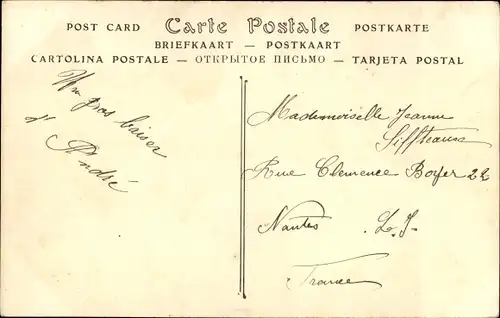 POST CARD Carte Postale POSTKARTE
BRIEFKAART — POSTKAART
CARTOLINA POSTALE — ОТКРЫТОЕ ПИСЬМО — TARJETA POSTAL
Un gros baiser
d'André
Mademoiselle Jeanne
Siffteaux
Rue Clemence Boyer 22
Nantes L. I.
France